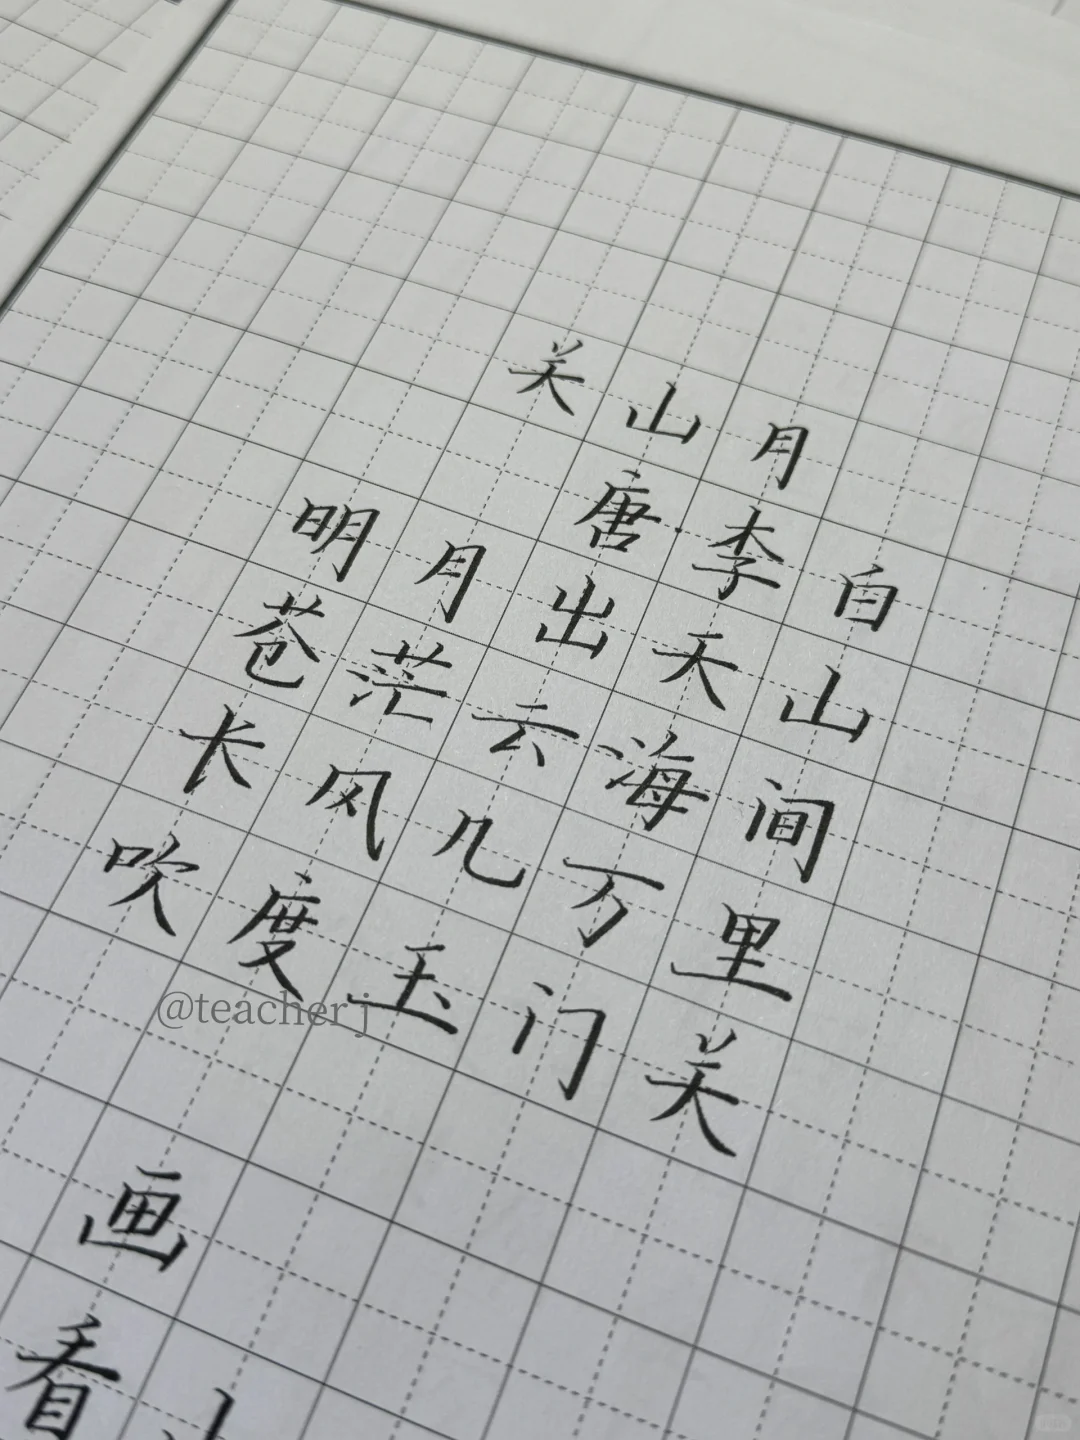 关山月
唐·李白
明月出天山
苍茫云海间
长风几万里
吹度玉门关
@teacher j
画
看山